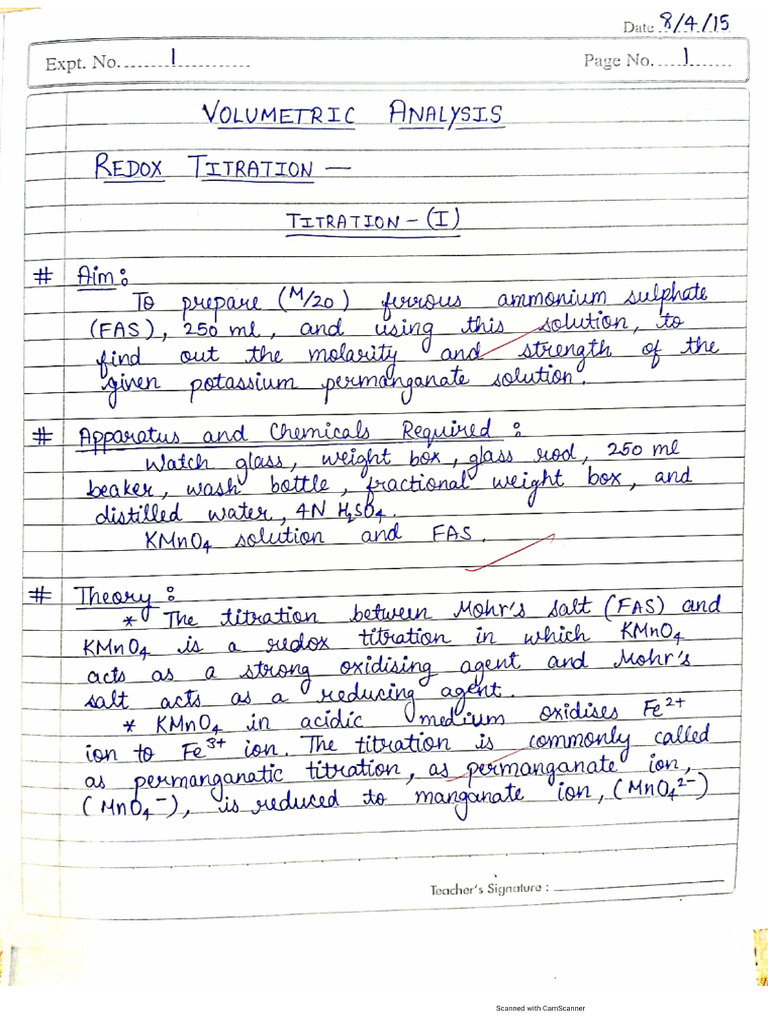 Date 8/4/15
Expt. No. 1
Page No. 1
VOLUMETRIC ANALYSIS
REDOX TITRATION —
TITRATION – (I)
# Aim :
To prepare (M/20) ferrous ammonium sulphate
(FAS), 250 ml, and using this solution, to
find out the molarity and strength of the
given potassium permanganate solution.
# Apparatus and Chemicals Required :
Watch glass, weight box, glass rod, 250 ml
beaker, wash bottle, fractional weight box, and
distilled water, 4N H₂SO₄.
KMnO₄ solution and FAS.
# Theory :
* The titration between Mohr's salt (FAS) and
KMnO₄ is a redox titration in which KMnO₄
acts as a strong oxidising agent and Mohr's
salt acts as a reducing agent.
* KMnO₄ in acidic medium oxidises Fe²⁺
ion to Fe³⁺ ion. The titration is commonly called
as permanganatic titration, as permanganate ion,
(MnO₄⁻), is reduced to manganate ion, (MnO₄²⁻)
Teacher's Signature :
Scanned with CamScanner